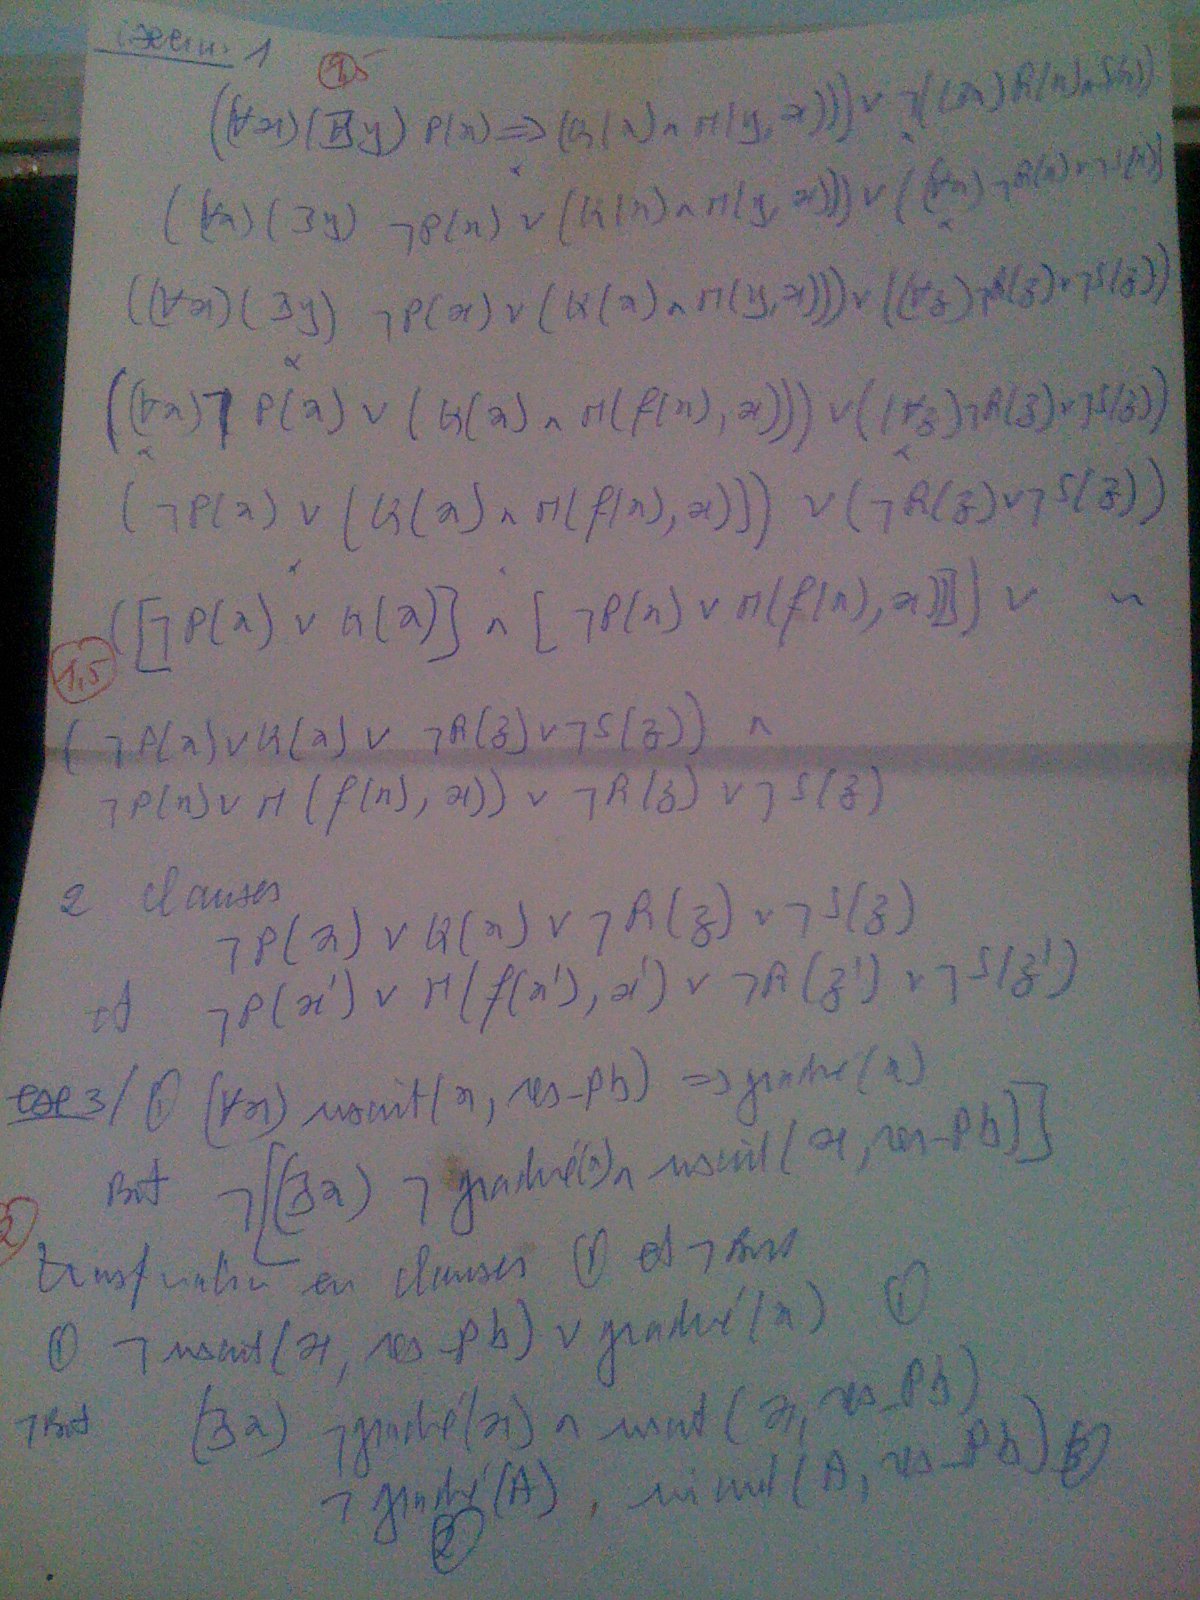 Exercice 1
1,5
((∀x)(∃y) P(x) => (Q(x) ∧ M(y,x))) ∨ ¬((∃x) R(x) ∧ S(x))
((∀x)(∃y) ¬P(x) ∨ (Q(x) ∧ M(y,x))) ∨ ((∀x) ¬R(x) ∨ ¬S(x))
((∀x)(∃y) ¬P(x) ∨ (Q(x) ∧ M(y,x))) ∨ ((∀z) ¬R(z) ∨ ¬S(z))
((∀x) ¬P(x) ∨ (Q(x) ∧ M(f(x), x))) ∨ ((∀z) ¬R(z) ∨ ¬S(z))
(¬P(x) ∨ (Q(x) ∧ M(f(x), x))) ∨ (¬R(z) ∨ ¬S(z))
([¬P(x) ∨ Q(x)] ∧ [¬P(x) ∨ M(f(x), x)]) ∨ ~
1,5
(¬P(x) ∨ Q(x) ∨ ¬R(z) ∨ ¬S(z)) ∧
¬P(x) ∨ M(f(x), x)) ∨ ¬R(z) ∨ ¬S(z)
2 clauses
¬P(x) ∨ Q(x) ∨ ¬R(z) ∨ ¬S(z)
et ¬P(x') ∨ M(f(x'), x') ∨ ¬R(z') ∨ ¬S(z')
exe 3/ ① (∀x) inscrit(x, res_Pb) => gradué(x)
But ¬[(∃x) ¬gradué(x) ∧ inscrit(x, res_Pb)]
2
transformation en clauses ① et ¬But
① ¬inscrit(x, res_Pb) ∨ gradué(x) ①
¬But (∃x) ¬gradué(x) ∧ inscrit(x, res_Pb)
¬gradué(A), inscrit(A, res_Pb) ③
②